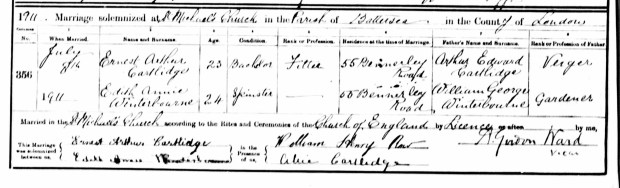 1911. Marriage solemnized at St Michael's Church in the Parish of Battersea in the County of London
No. When Married. Name and Surname. Age. Condition. Rank or Profession. Residence at the time of Marriage. Father's Name and Surname. Rank or Profession of Father
356 July 8th 1911 Ernest Arthur Cartlidge 23 Bachelor Fitter 55 Bennerley Road Arthur Edward Cartlidge Verger
Edith Annie Winterbourne 24 Spinster 55 Bennerley Road William George Winterbourne Gardener
Married in the St Michael's Church according to the Rites and Ceremonies of the Church of England by Licence or after by me,
This Marriage was solemnized between us, Ernest Arthur Cartlidge in the Presence of us, William Henry A. Gordon Ward
Edith Annie Winterbourne Alice Cartlidge Vicar